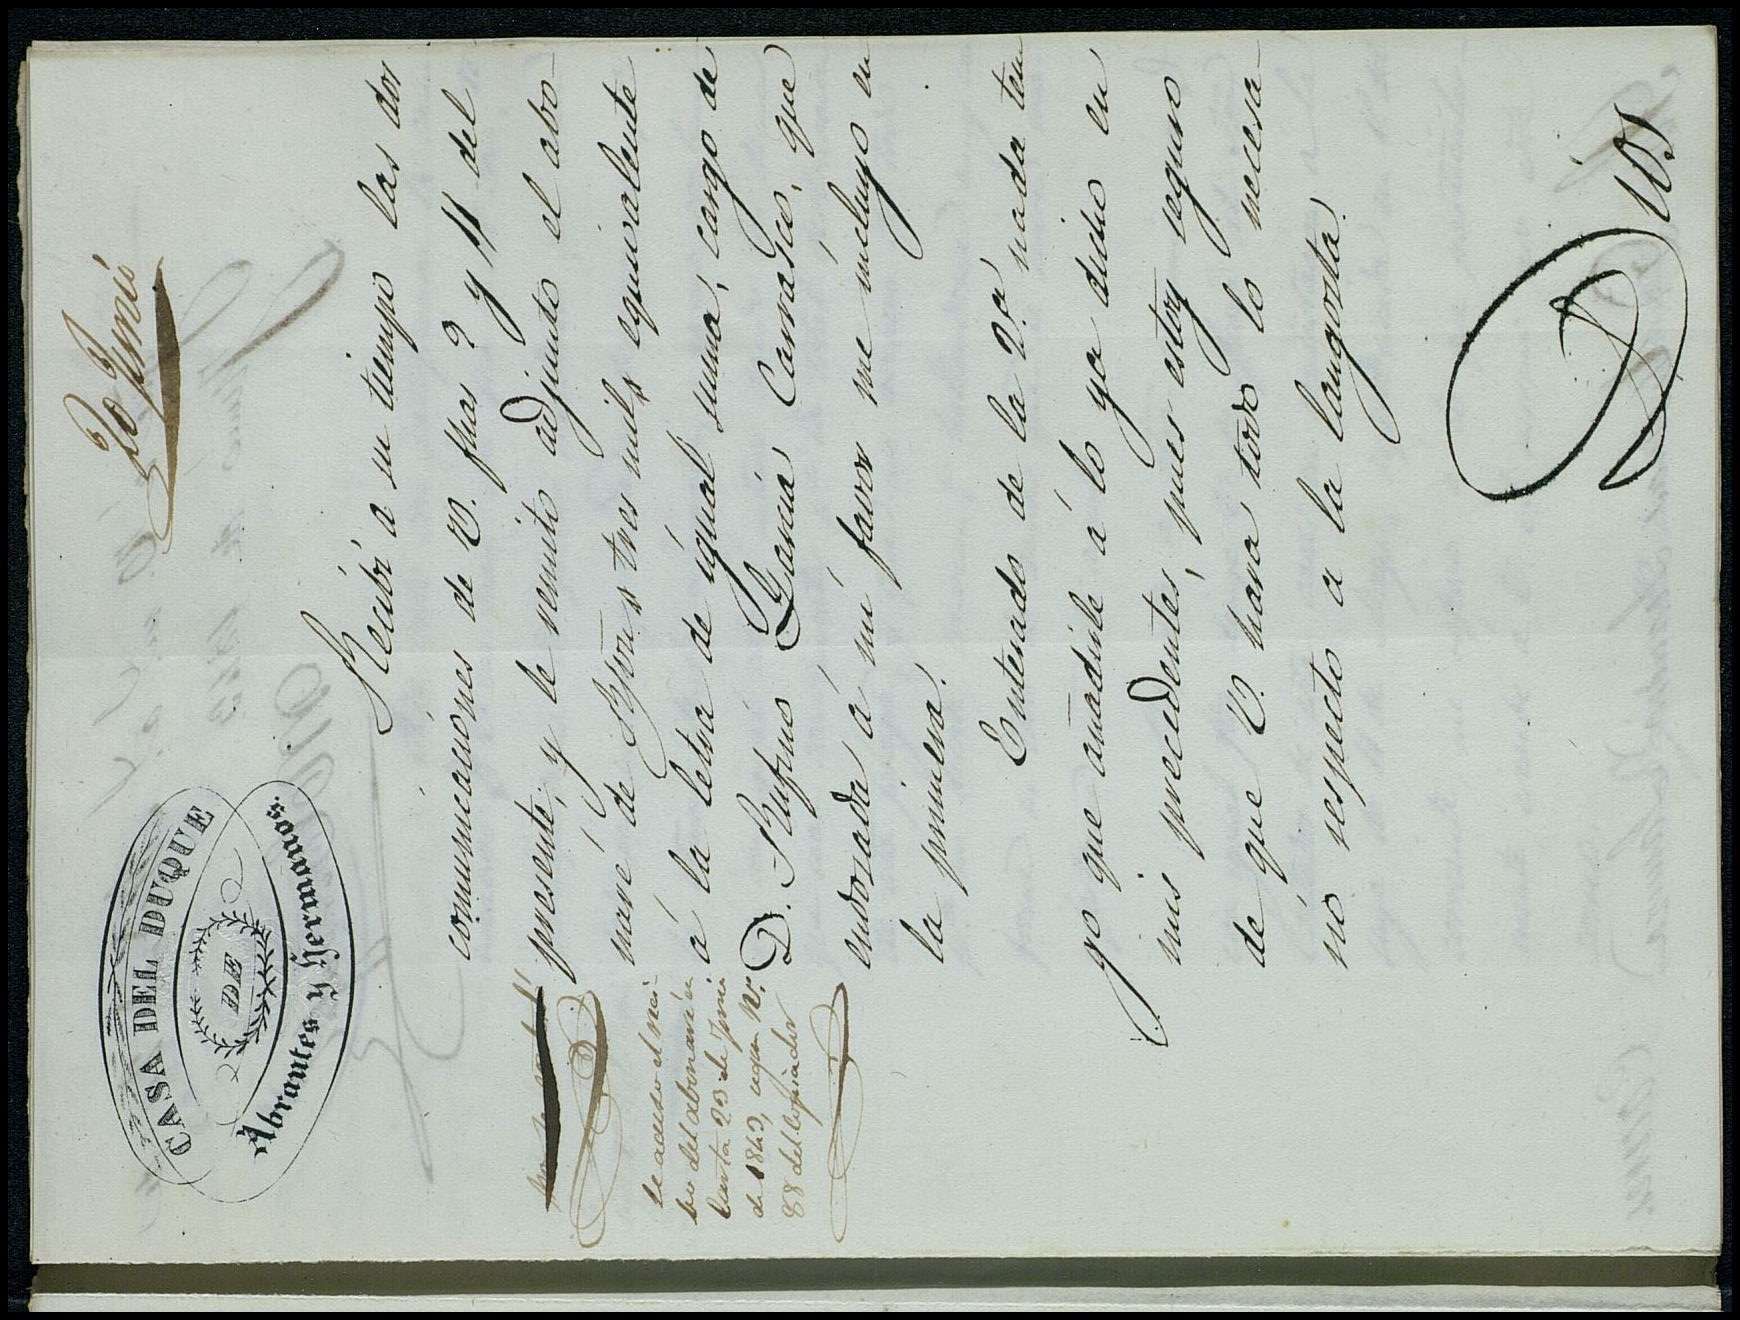 CASA DEL DUQUE
DE
Abrantes y Hermanos.
20 Junio
Recibi a su tiempo las dos
comunicaciones de V. fhas 9 y 11 del
presente, y le remito adjunto el abo-
naré de tres mil equivalente
á la letra de igual suma, cargo de
D. Rufino Garcia Carrasco, que
endosada á mi favor me incluyo en
la primera.
Enterado de la 2.ª nada ten
go que añadirle á lo ya dicho en
mis precedentes, pues estoy seguro
de que V. hara todo lo necesa-
rio respecto a la langosta.
Se acuso el reci-
bo del abonaré en
Carta 23 de Junio
de 1843, N.º
88 del Copiador